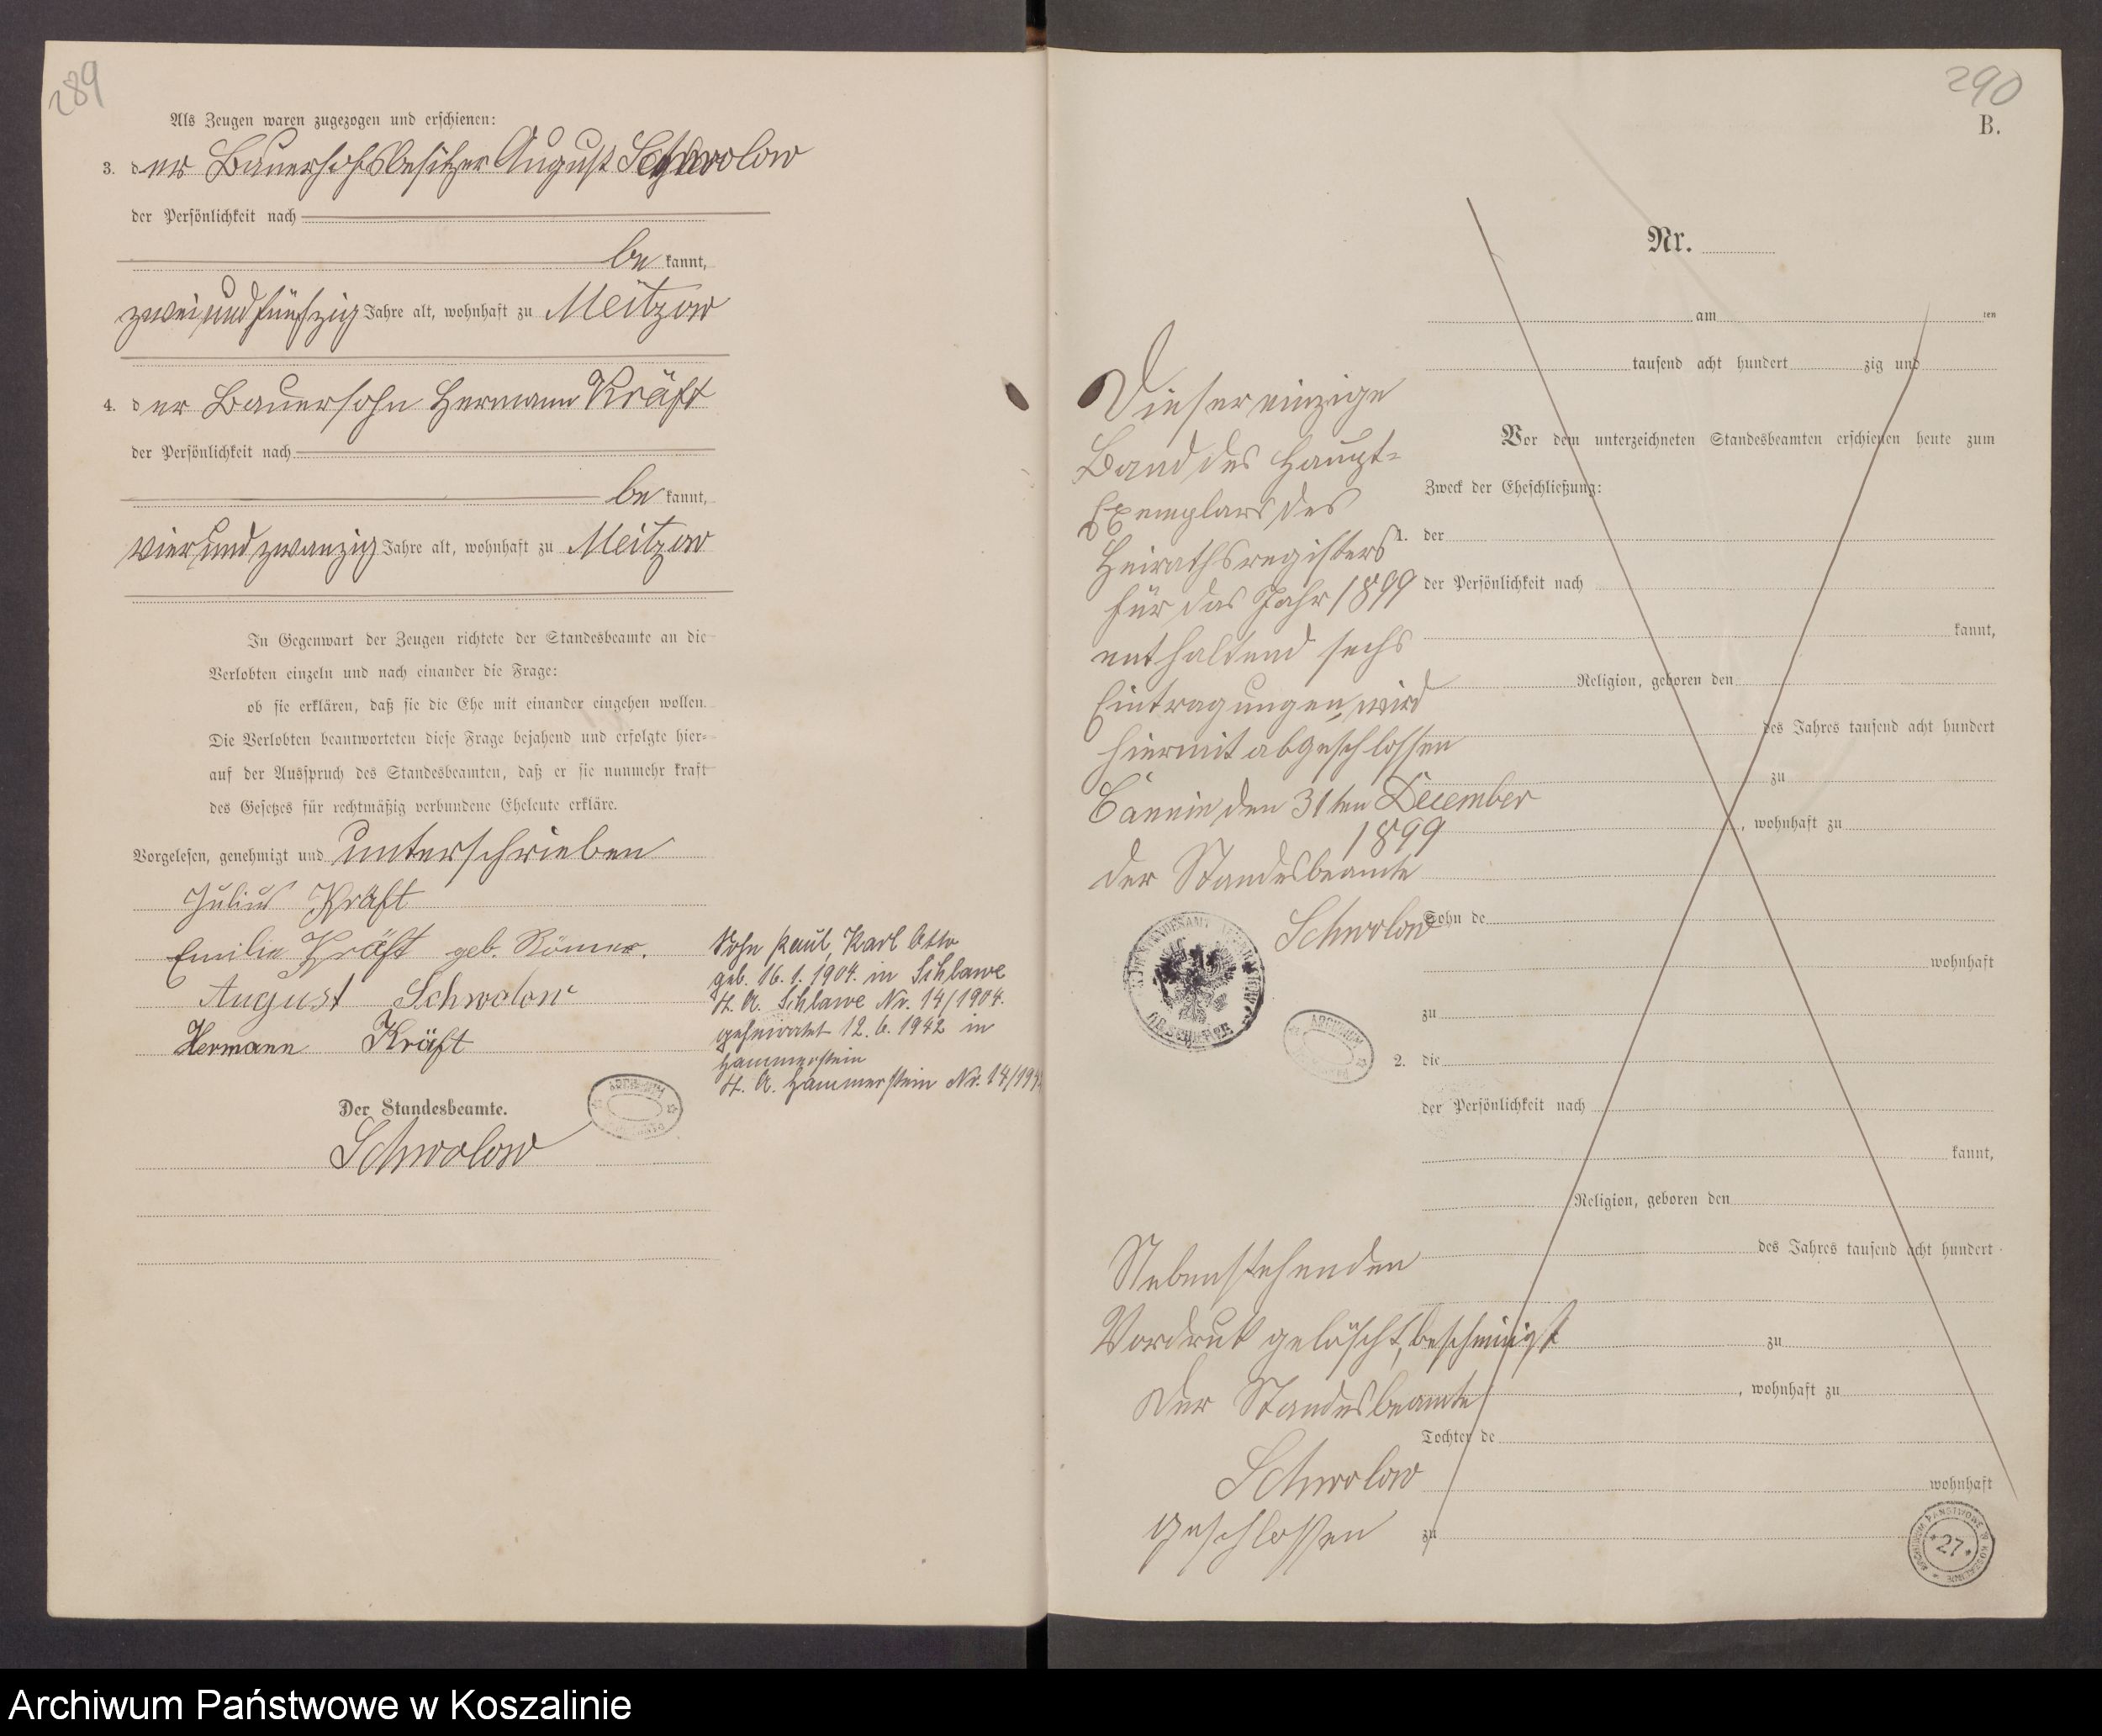 289
Als Zeugen waren zugezogen und erschienen:
3. der Bauerhofsbesitzer August Schwolow
der Persönlichkeit nach
be kannt,
zwei und fünfzig Jahre alt, wohnhaft zu Meitzow
4. der Bauersohn Hermann Kräft
der Persönlichkeit nach
be kannt,
vier und zwanzig Jahre alt, wohnhaft zu Meitzow
In Gegenwart der Zeugen richtete der Standesbeamte an die
Verlobten einzeln und nach einander die Frage:
ob sie erklären, daß sie die Ehe mit einander eingehen wollen.
Die Verlobten beantworteten diese Frage bejahend und erfolgte hier-
auf der Ausspruch des Standesbeamten, daß er sie nunmehr kraft
des Gesetzes für rechtmäßig verbundene Eheleute erkläre.
Vorgelesen, genehmigt und unterschrieben
Julius Kräft
Emilie Kräft geb. Römer.
August Schwolow
Hermann Kräft
Der Standesbeamte.
Schwolow
Sohn Paul, Karl Otto
geb. 16.1.1904. in Schlawe
St. A. Schlawe Nr. 14/1904.
geheiratet 12.6.1942 in
Hammerstein
St. A. Hammerstein Nr. 14/194
ARCHIWUM
290
B.
Nr.
am ten
tausend acht hundert zig und
Vor dem unterzeichneten Standesbeamten erschienen heute zum
Zweck der Eheschließung:
1. der
der Persönlichkeit nach
kannt,
Religion, geboren den
des Jahres tausend acht hundert
zu
, wohnhaft zu
Sohn de
wohnhaft
zu
2. die
der Persönlichkeit nach
kannt,
Religion, geboren den
des Jahres tausend acht hundert
zu
, wohnhaft zu
Tochter de
wohnhaft
zu
Dieser einzige
Band des Haupt-
Exemplars des
Heirathsregisters
für das Jahr 1899
enthaltend sechs
Eintragungen, wird
hiermit abgeschlossen
den 31ten December
1899
Der Standesbeamte
Schwolow
ARCHIWUM
Nebenstehenden
Vordruck gelöscht, bescheinigt
Der Standesbeamte
Schwolow
geschlossen
ARCHIWUM PAŃSTWOWE W KOSZALINIE
* 27 *
Archiwum Państwowe w Koszalinie